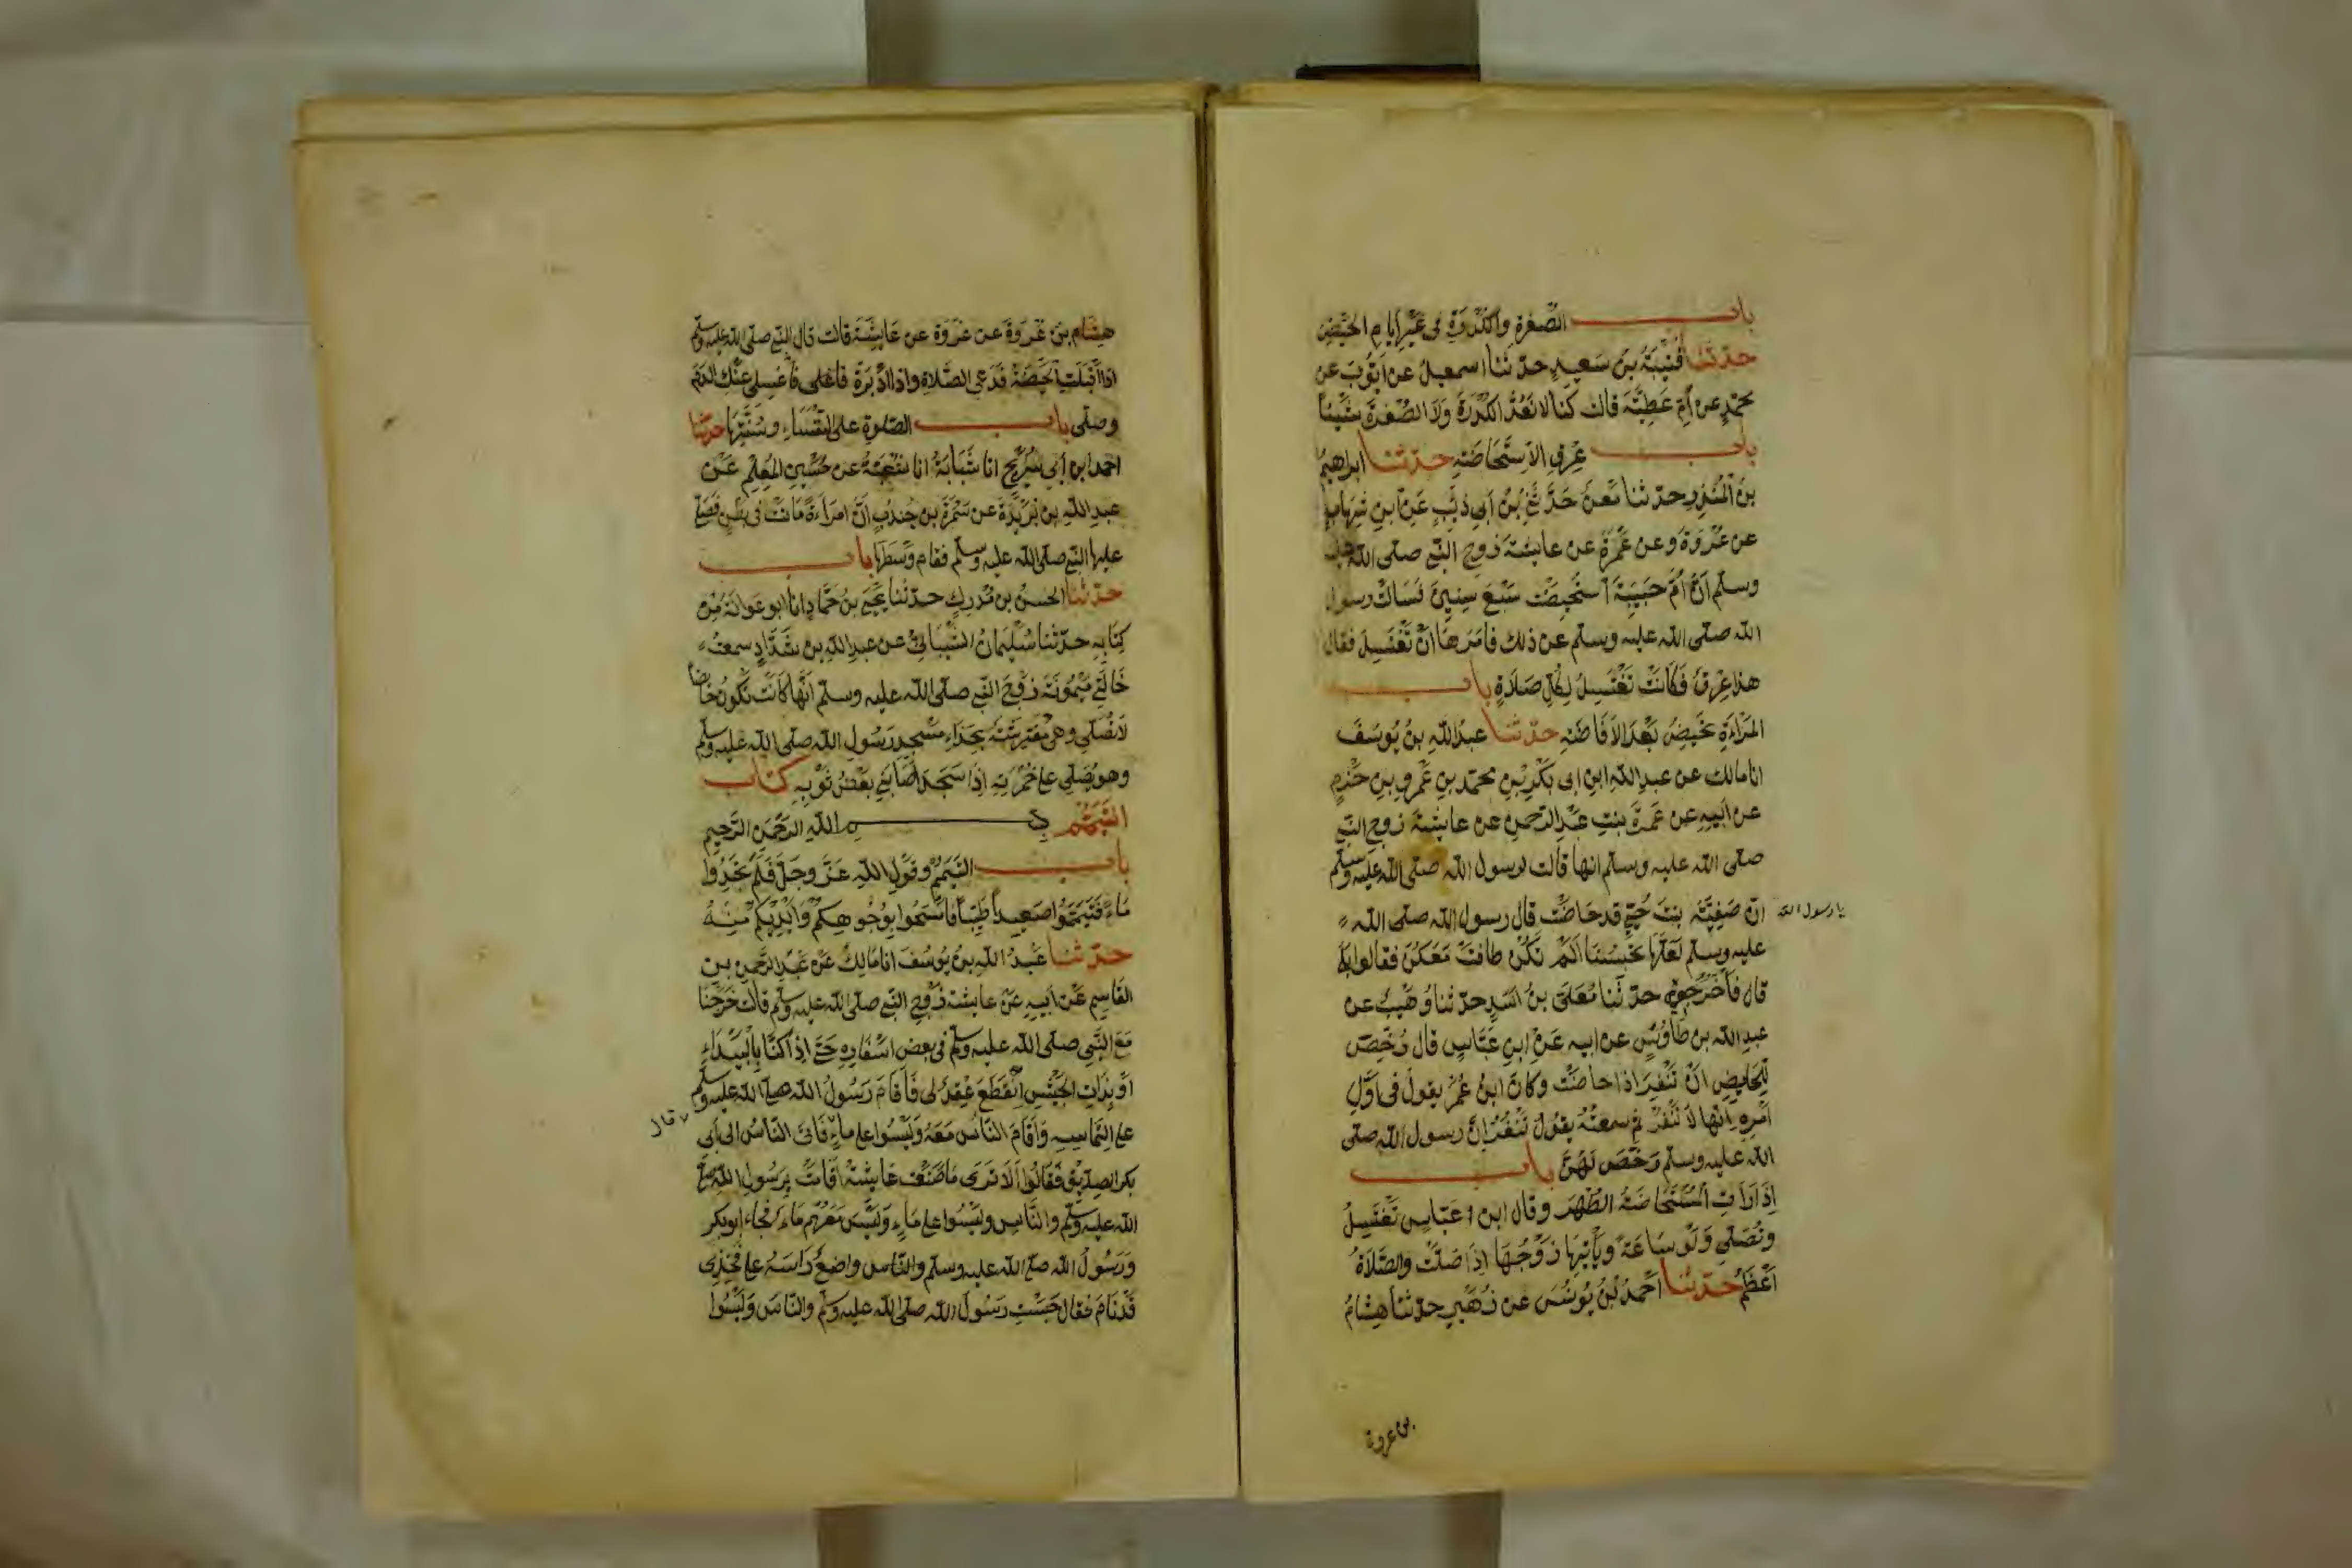 باب الصُّفرة والكُدْرَةِ فى غَيْرِ أيام الحَيْضِ
حدثنا قُتَيْبَةُ بنُ سَعِيدٍ حدثنا اسمعيلُ عن اَيُّوبَ عن
محمّدٍ عن أُمِّ عَطِيَّة قالت كنا لا نَعُدُّ الكُدْرَةَ وَلَا الصُّفْرَةَ شَيْئاً
باب عِرْقِ الاستحاضَةِ حدثنا ابراهيمُ
بنُ المُنْذِرِ حدثنا مَعْنٌ حَدَّثَنِى بْنُ اَبِى ذِئْبٍ عَنْ ابنِ شِهَابٍ
عن عُرْوَةَ وعن عَمْرَةَ عن عايشةَ زوج النبى صلى الله عليه
وسلم اَنَّ اُمَّ حَبِيبَةَ اُسْتُحِيضَت سَبْعَ سِنِينَ فَسَالَتْ رسول
الله صلى الله عليه وسلم عن ذلك فامَرَهَا اَنْ تَغْتَسِلَ فقال
هذا عِرْقٌ فَكَانَتْ تَغْتَسِلُ لِكُلِّ صَلَاةٍ باب
المَرْاَةِ تَحِيضُ بَعْدَ الاِفَاضَةِ حدثنا عبدُ اللهِ بنُ يُوسُفَ
انا مالك عن عبدِ اللهِ ابنِ ابى بَكْرِ بْنِ محمّدِ بنِ عَمْرِو بنِ حَزْمٍ
عن اَبِيهِ عن عَمْرَةَ بنتِ عَبْدِ الرّحمنِ عن عايشةَ زوج النبى
صلى الله عليه وسلم انها قالت لرسول الله صلى الله عليه وسلم
يا رسول الله
انّ صَفِيَّةَ بنتَ حُيَىٍّ قد حَاضَتْ قال رسول الله صلى الله
عليه وسلم لَعَلَّهَا تَحْبِسُنَا اَلَمْ تَكُنْ طافت مَعَكُنَّ فقالوا بلى
قال فَاخْرُجِى حدثنا مُعَلَّى بنُ اَسَدٍ حدثنا وُهَيْبٌ عن
عبدِ الله بن طاوُسٍ عن ابيه عَنْ ابنِ عَبَّاسٍ قال رُخِّصَ
لِلحَايِضِ اَنْ تَنْفِرَ اذا حاضَتْ وكانَ ابنُ عُمَرَ يقولُ فى اَوَّلِ
اَمْرِهِ اِنَّهَا لَا تَنْفِرُ ثم سمعتُهُ يقُولُ تَنْفِرُ اِنَّ رسول الله صلى
الله عليه وسلم رَخَّصَ لَهُنَّ باب
اِذَا رَاَتِ المُسْتَحَاضَةُ الطُّهْرَ وقال ابن عَبّاسٍ تَغْتَسِلُ
وتُصَلِّى وَلَو سَاعَةً ويَأتِيهَا زَوْجُهَا اِذَا صَلَّتْ والصَّلَاةُ
اَعْظَمُ حدثنا اَحْمَدُ بْنُ يُونُسَ عن زُهَيْرٍ حدثنا هِشَامُ
بن عروة
هِشَام بنُ عُرْوَةَ عن عُرْوَةَ عن عَايِشَةَ قالت قال النبى صلى الله عليه وسلم
اذا اَقْبَلَتِ الحَيْضَةُ فَدَعِى الصَّلاةَ واذا ادْبَرَة فاغسلى عَنْكِ الدَمَ
وصلى باب الصّلوةِ على النُّفَسَاءِ وسُنَّتِهَا حدثنا
احمد ابن اَبى سُرَيْجٍ انا شَبَابَةُ انا شُعْبَةُ عن حُسَيْنِ المُعَلِّمِ عَنْ
عبدِ اللهِ بن بُرَيْدَةَ عن سَمُرَةَ بنِ جُنْدُبٍ اَنَّ امرَاَةً مَاتَتْ فى بَطْنٍ فَصَلّى
عليها النبى صلى الله عليه وسلم فقام وَسَطَهَا باب
حدثنا الحسنُ بن مُدْرِكٍ حدثنا يَحْيَى بنُ حَمَّادٍ انا ابو عَوَانَةَ مِنْ
كِتَابِهِ حدثنا سُلَيْمَانُ الشَّيْبَانِىُّ عن عبدِ اللهِ بن شَدَّادٍ سمعتُ
خَالَتِى مَيْمُونَةَ زَوْجَ النبى صلى الله عليه وسلم اَنَّهَا كَانَتْ تَكُونُ حَايضاً
لَا تُصَلِّى وهى مُفْتَرِشَةٌ بِحِذَاءِ مَسْجِدِ رَسُولِ الله صلى الله عليه وسلم
وهو يُصَلِّى على خُمْرَتِهِ اِذَا سَجَدَ اَصَابَنِى بَعْضُ ثَوْبِهِ كتاب
التَّيَمُّمِ بسم الله الرَّحْمَنِ الرَّحِيمِ
باب التَّيَمُّمِ وقَوْلِ اللهِ عَزَّ وجَلَّ فَلَمْ تَجِدُوا
مَاءً فَتَيَمَّمُوا صَعِيداً طَيِّباً فَامْسَحُوا بِوُجُوهِكُمْ وَاَيْدِيكُمْ مِنْهُ
حدثنا عَبْدُ اللهِ بنُ يُوسُفَ انا مَالِكٌ عَنْ عَبْدِ الرَّحمنِ بنِ
القَاسِمِ عَنْ اَبِيهِ عَنْ عايشة زَوْجِ النبى صلى الله عليه وسلم قالت خَرَجْنَا
مَعَ النَّبِى صلى الله عليه وسلم فى بعضِ اَسْفَارِهِ حَتَّى اِذَا كُنَّا بِالْبَيْدَاءِ
اَوْ بِذَاتِ الجَيْشِ اِنْقَطَعَ عِقْدٌ لِى فَاَقَامَ رَسُولُ الله صلى الله عليه وسلم
على التماسِهِ وَاَقَامَ النَّاسُ مَعَهُ وَلَيْسُوا على ماءٍ فَاتَى النَّاسُ الى اَبى
قال
بكر الصديق فَقَالُوا اَلَا تَرَى مَا صَنَعَتْ عَايشَةُ اَقَامَتْ بِرَسُولِ الله صلى
الله عليه وسلم والنَّاسِ ولَيْسُوا على مَاءٍ وَلَيْسَ مَعَهُم مَاءٌ فجاء ابو بكر
وَرَسُولُ الله صلى الله عليه وسلم والنَّاس واضِعٌ رَاسَهُ على فَخِذِى
قَدْ نَامَ فقال حَبَسْتِ رَسُولَ الله صلى الله عليه وسلم والنّاسَ وَلَيْسُوا